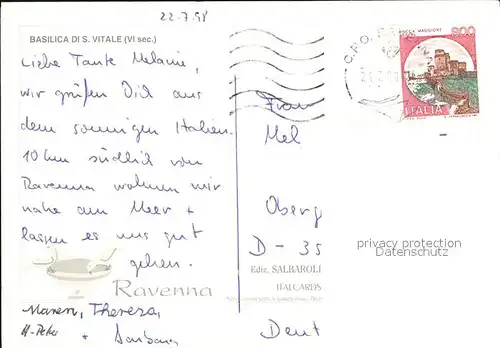 22-7.98
BASILICA DI S. VITALE (VI sec.)
Liebe Tante Melanie,
wir grüßen Dich aus
dem sonnigen Italien.
10 km südlich von
Ravenna wohnen wir
nahe am Meer +
lassen es uns gut
gehen.
Maren, Theresa,
H-Peter + Barbara
Ravenna
Ediz. SALBAROLI
ITALCARDS
Frau
Mel
Oberg
D - 35
Deut
C.P.O.
ROCCA MAGGIORE
800
ITALIA
privacy protection
Datenschutz